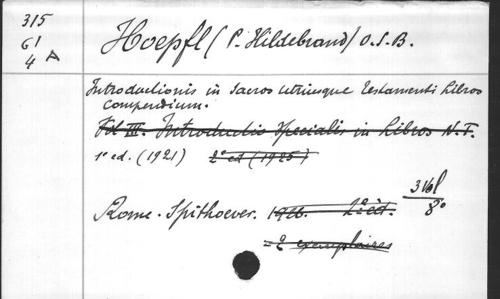 315
G1
4 A
Hoepfl (P. Hildebrand) O.S.B.
Introductionis in sacros utriusque Testamenti Libros
compendium.
Vol III. Introductio specialis in Libros N.T.
1e ed. (1921) 2e ed (1925)
3 Vol
Rome. Spithoever. 1926. 2e éd. 8°
= 2 exemplaires